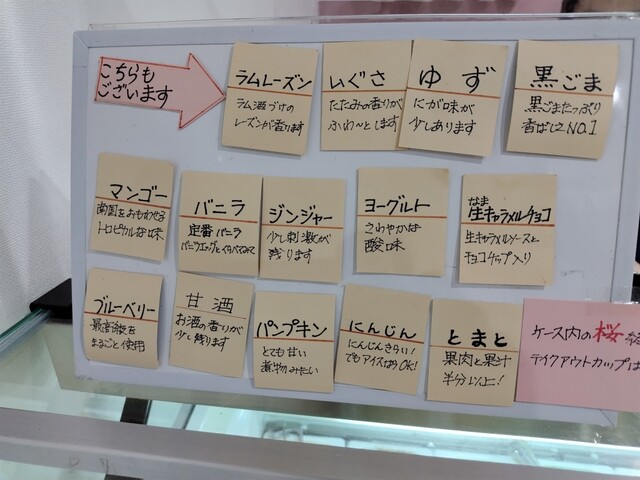 こちらも
ございます
ラムレーズン
ラム酒づけの
レーズンが香ります
いぐさ
たたみの香りが
ふわ〜とします
ゆず
にが味が
少しあります
黒ごま
黒ごまたっぷり
香ばしさNO.1
マンゴー
南国をおもわせる
トロピカルな味
バニラ
定番バニラ
バニラエッグとくらべてみて
ジンジャー
少し刺激が
残ります
ヨーグルト
さわやかな
酸味
なま
生キャラメルチョコ
生キャラメルソースと
チョコチップ入り
ブルーベリー
最高級を
まるごと使用
甘酒
お酒の香りが
少し残ります
パンプキン
とても甘い
煮物みたい
にんじん
にんじんきらい!
でもアイスならOK!
とまと
果肉と果汁
半分以上!
ケース内の桜
テイクアウトカップは